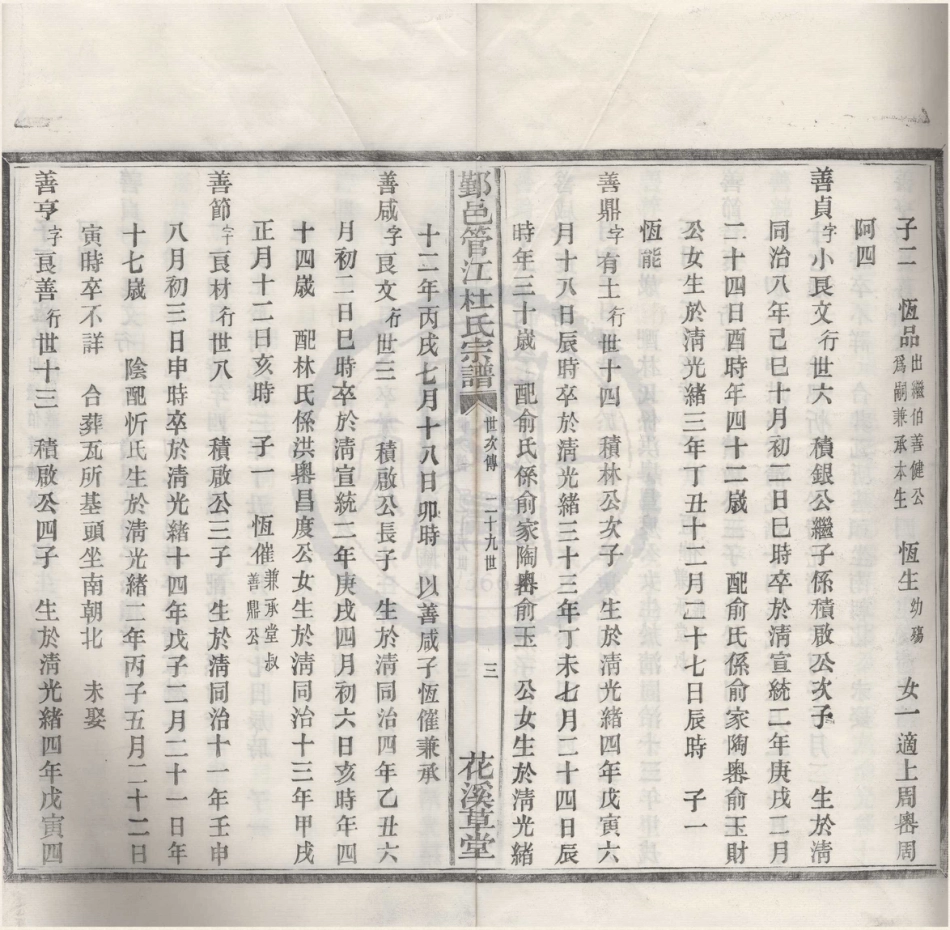 子二　恆品出繼伯善健公為嗣兼承本生　恆生幼殤　女一適上周嶴周
阿四
善貞字小良文行世六　積銀公繼子係積啟公次子　生於清
同治八年己巳十月初二日巳時卒於清宣統二年庚戌三月
二十四日酉時年四十二歲　配俞氏係俞家陶嶴俞玉財
公女生於清光緒三年丁丑十二月二十七日辰時　子一
恆能
善鼎字有土行世十四　積林公次子　生於清光緒四年戊寅六
月十八日辰時卒於清光緒三十三年丁未七月二十四日辰
時年三十歲　配俞氏係俞家陶嶴俞玉　公女生於清光緒
鄞邑管江杜氏宗譜　世次傳　二十九世　三　花溪草堂
十二年丙戌七月十八日卯時　以善咸子恆催兼承
善咸字良文行世三　積啟公長子　生於清同治四年乙丑六
月初二日巳時卒於清宣統二年庚戌四月初六日亥時年四
十四歲　配林氏係洪嶴昌度公女生於清同治十三年甲戌
正月十二日亥時　子一　恆催兼承堂叔善鼎公
善節字良材行世八　積啟公三子　生於清同治十一年壬申
八月初三日申時卒於清光緒十四年戊子二月二十一日年
十七歲　陰配忻氏生於清光緒二年丙子五月二十二日
寅時卒不詳　合葬瓦所基頭坐南朝北　未娶
善亨字良善行世十三　積啟公四子　生於清光緒四年戊寅四